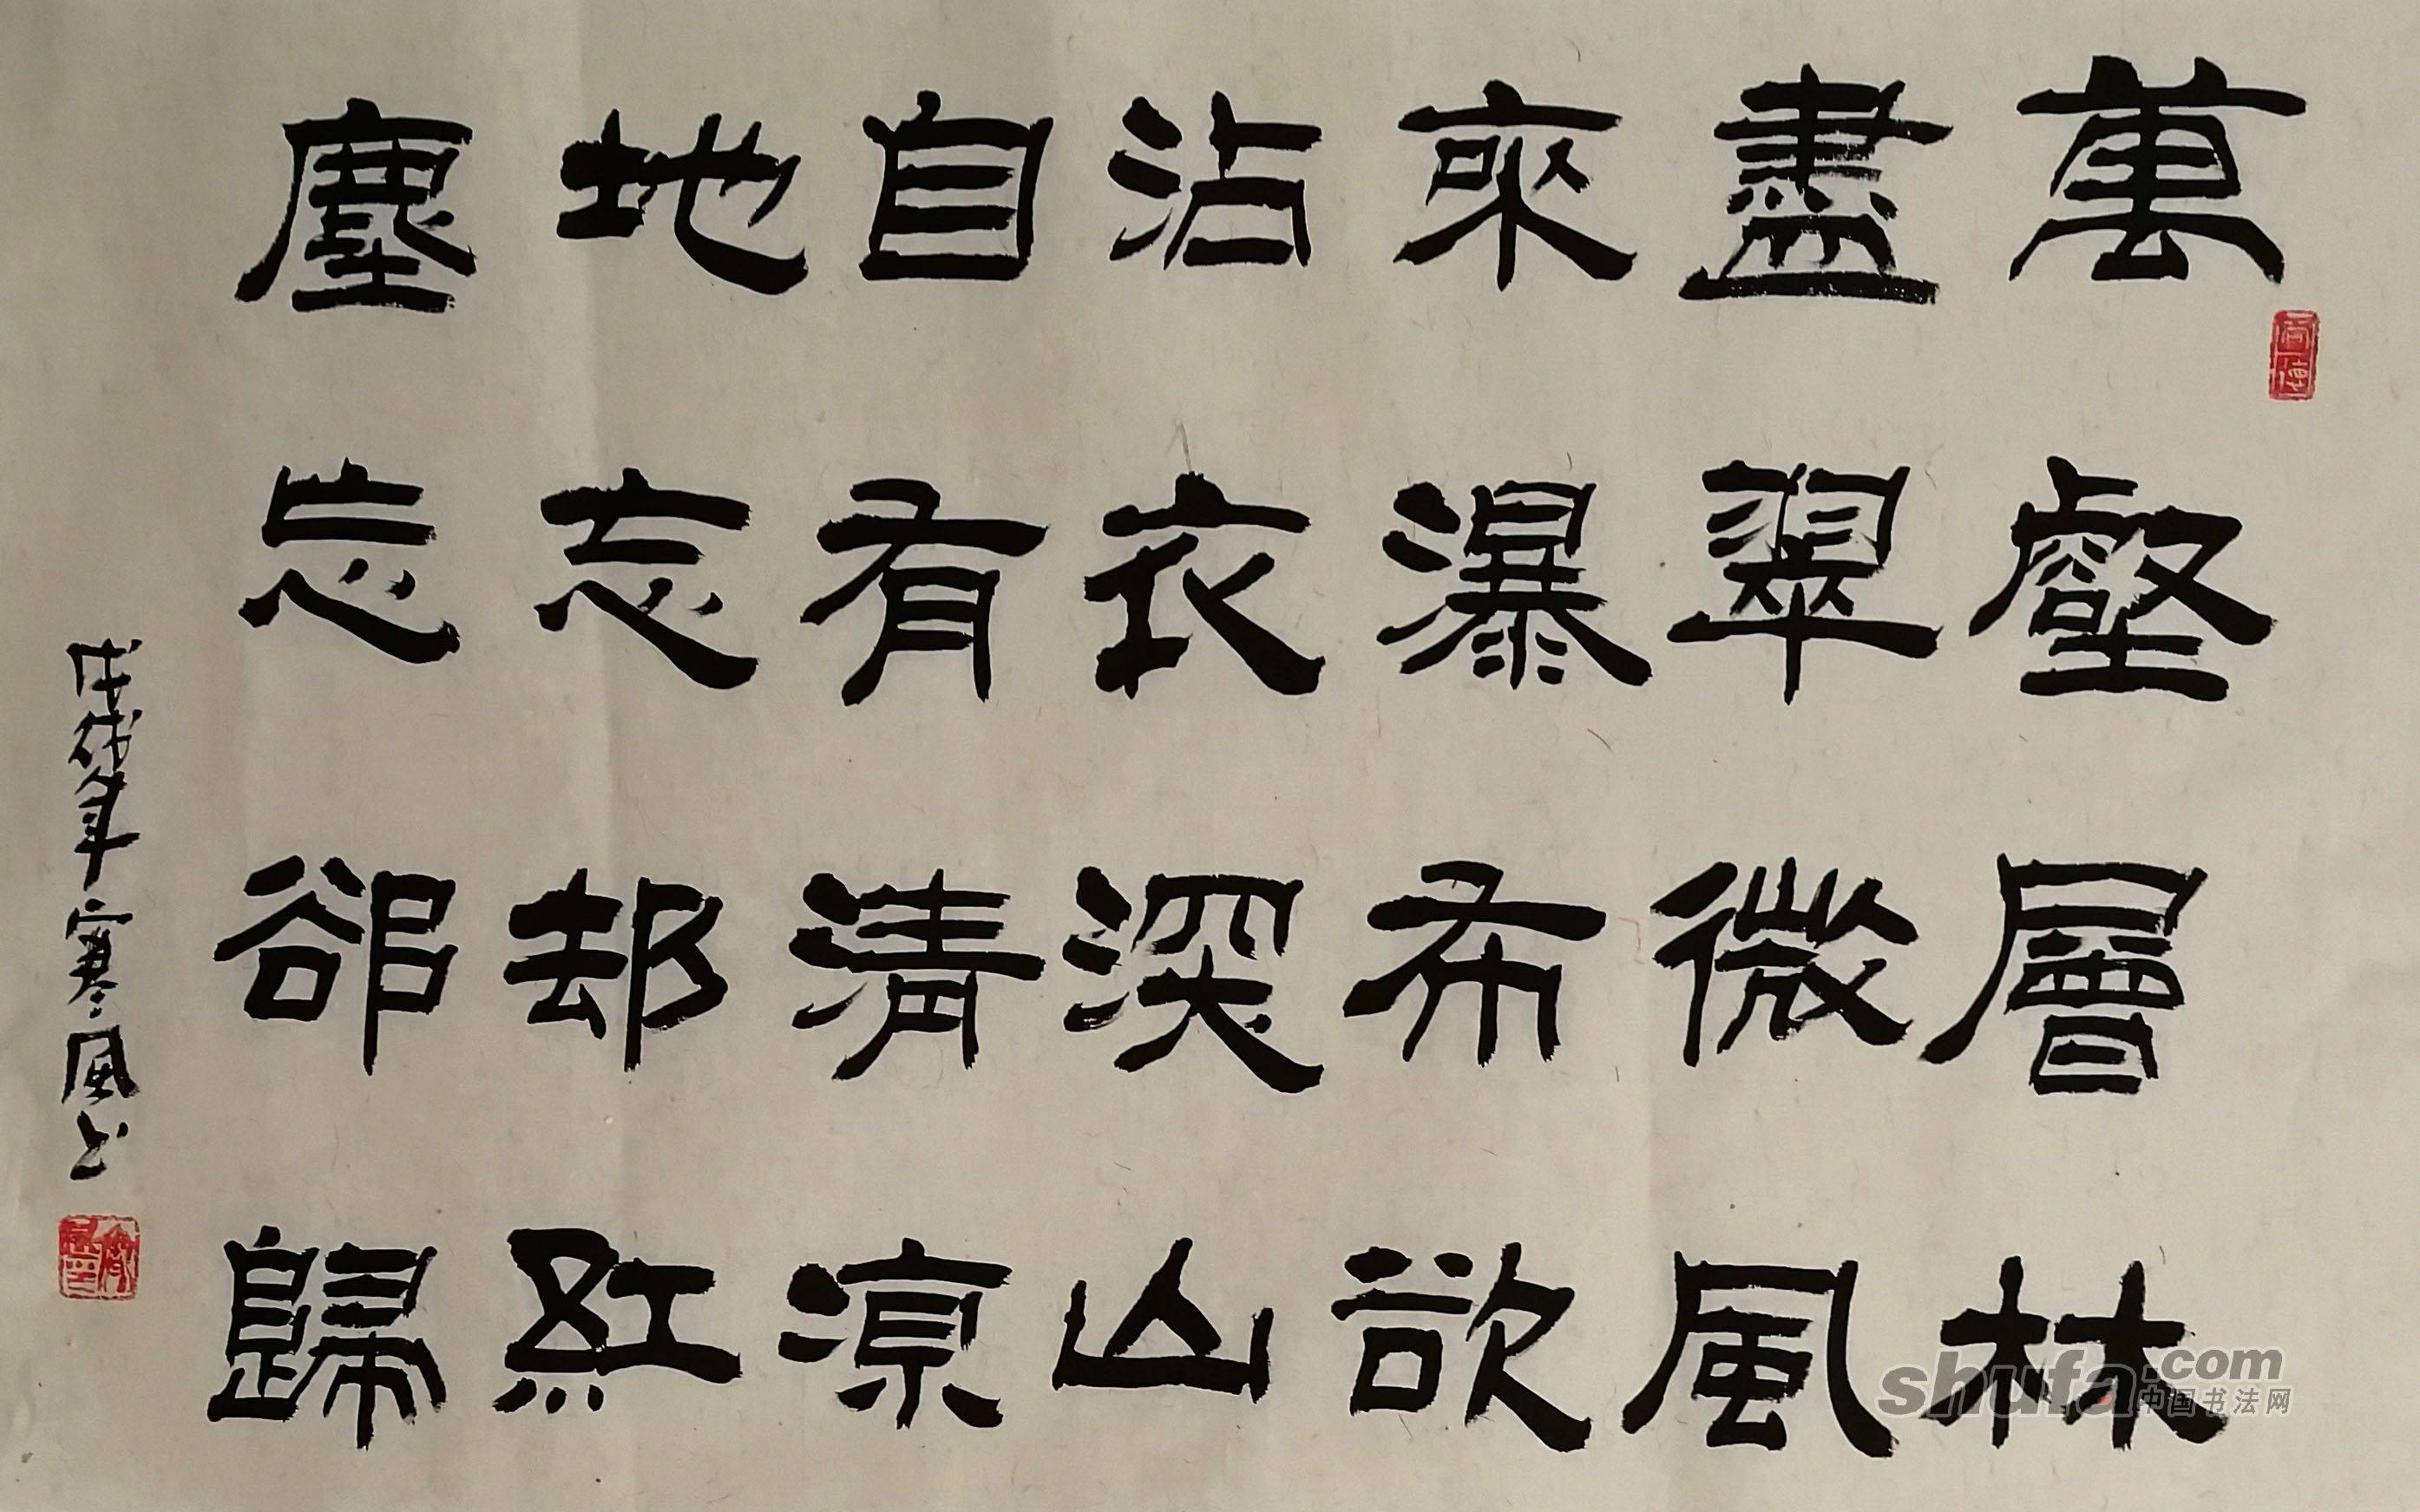 萬壑層林
盡翠微風
來瀑布欲
沾衣深山
自有清涼
地忘却紅
塵忘卻歸
戊戌年寒風书
shufa.com
中国书法网